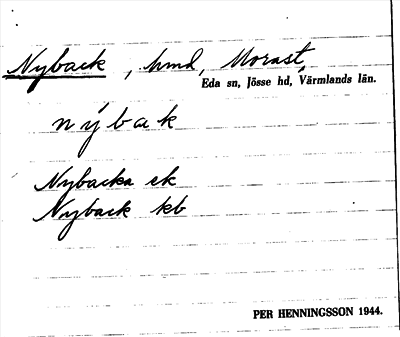 Nyback, hmd, Morast,
Eda sn, Jösse hd, Värmlands län.
nýbak
Nybacka ek
Nyback kb
PER HENNINGSSON 1944.